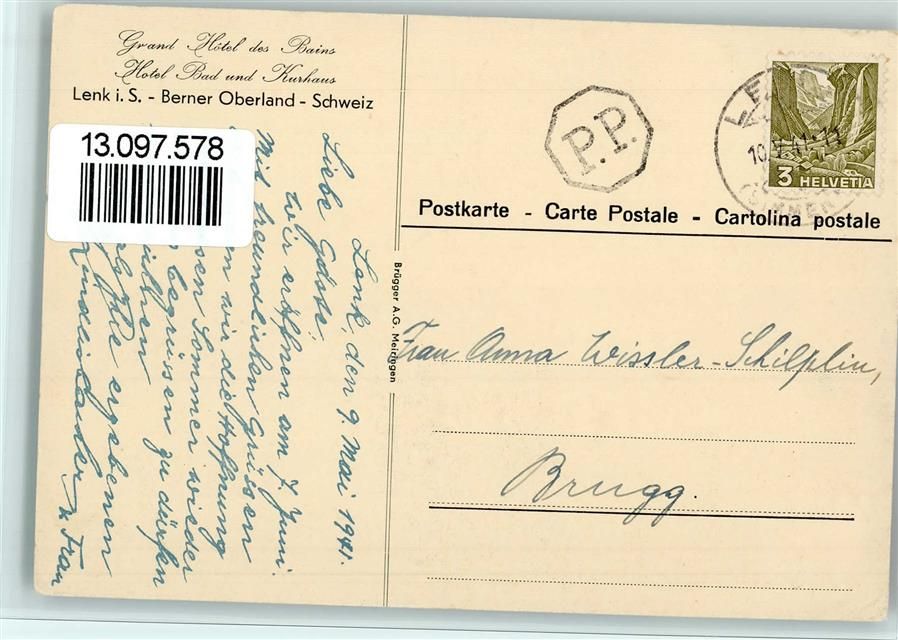 Grand Hôtel des Bains
Hotel Bad und Kurhaus
Lenk i. S. - Berner Oberland - Schweiz
13.097.578
P.P.
3 HELVETIA
Postkarte - Carte Postale - Cartolina postale
Brügger A.G. Meiringen
Lenk, den 9. Mai 1941.
Liebe Gäste!
Wir eröffnen am 7. Juni.
Mit freundlichen Grüssen
wir die Hoffnung
Sommer wieder
begrüssen zu dürfen
Ihre ergebenen
& Frau
Frau Anna Wissler-Schilplin,
Brugg.